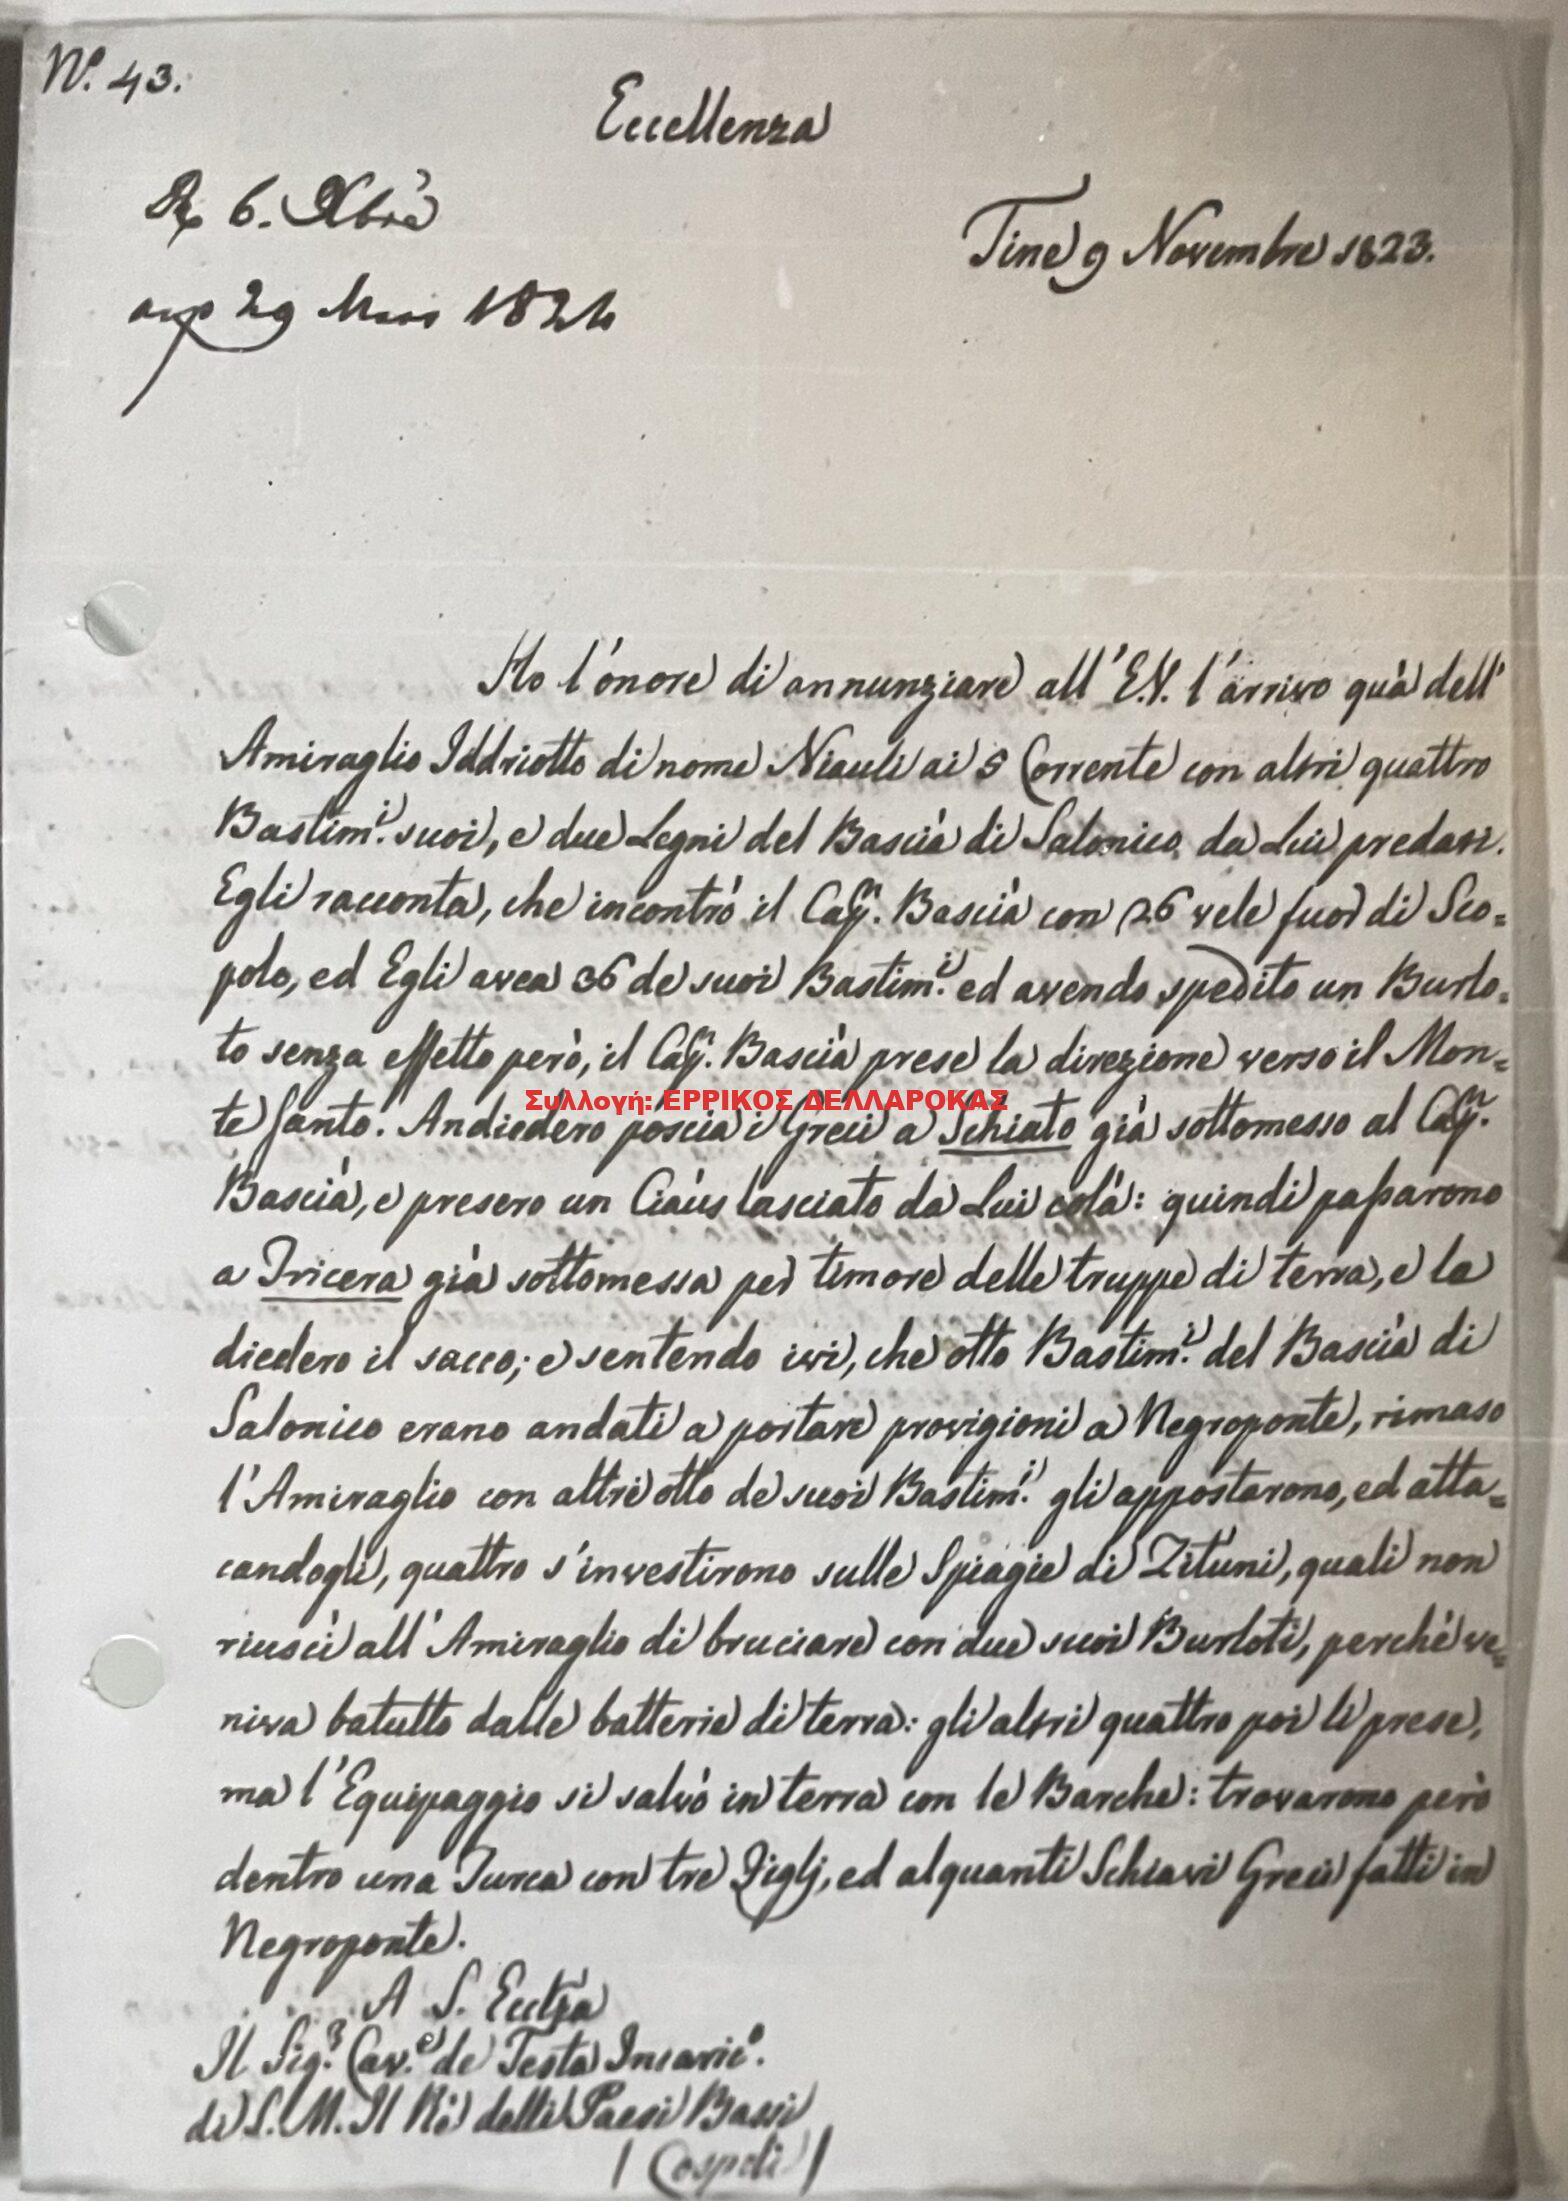 N.º 43.
Eccellenza
R 6. Xbre
Tine 9 Novembre 1823.
29 Mars 1824
Ho l'onore di annunziare all'E.V. l'arrivo quà dell'
Amiraglio Iddriotto di nome Niauli ai 5 Corrente con altri quattro
Bastim.i suoi, e due Legni del Bascià di Salonico da Lui predati.
Egli racconta, che incontrò il Cap.n Bascià con 26 vele fuor di Sco=
polo, ed Egli avea 36 de suoi Bastim.i ed avendo spedito un Burlo=
to senza effetto però, il Cap.n Bascià prese la direzione verso il Mon=
Συλλογή: ΕΡΡΙΚΟΣ ΔΕΛΛΑΡΟΚΑΣ
te Santo. Andiedero poscia i Greci a Schiato già sottomesso al Cap.n
Bascià, e presero un Ciaús lasciato da Lui colà: quindi passarono
a Tricera già sottomessa per timore delle truppe di terra, e la
diedero il sacco; e sentendo ivi, che otto Bastim.i del Bascià di
Salonico erano andati a portare provigioni a Negroponte, rimaso
l'Amiraglio con altri otto de suoi Bastim.i gli appostarono, ed atta=
candogli, quattro s'investirono sulle Spiagie di Zitúni, quali non
riuscì all'Amiraglio di bruciare con due suoi Burloti, perché ve=
niva batutto dalle batterie di terra: gli altri quattro poi li prese,
ma l'Equipaggio si salvò in terra con le Barche: trovarono però
dentro una Turca con tre Figlj, ed alquanti Schiavi Greci fatti in
Negroponte.
A S. Ecclza
Il Sig.r Cav.e de Testa Incaric.o
di S. M. Il Rè delli Paesi Bassi
/ Cospoli /